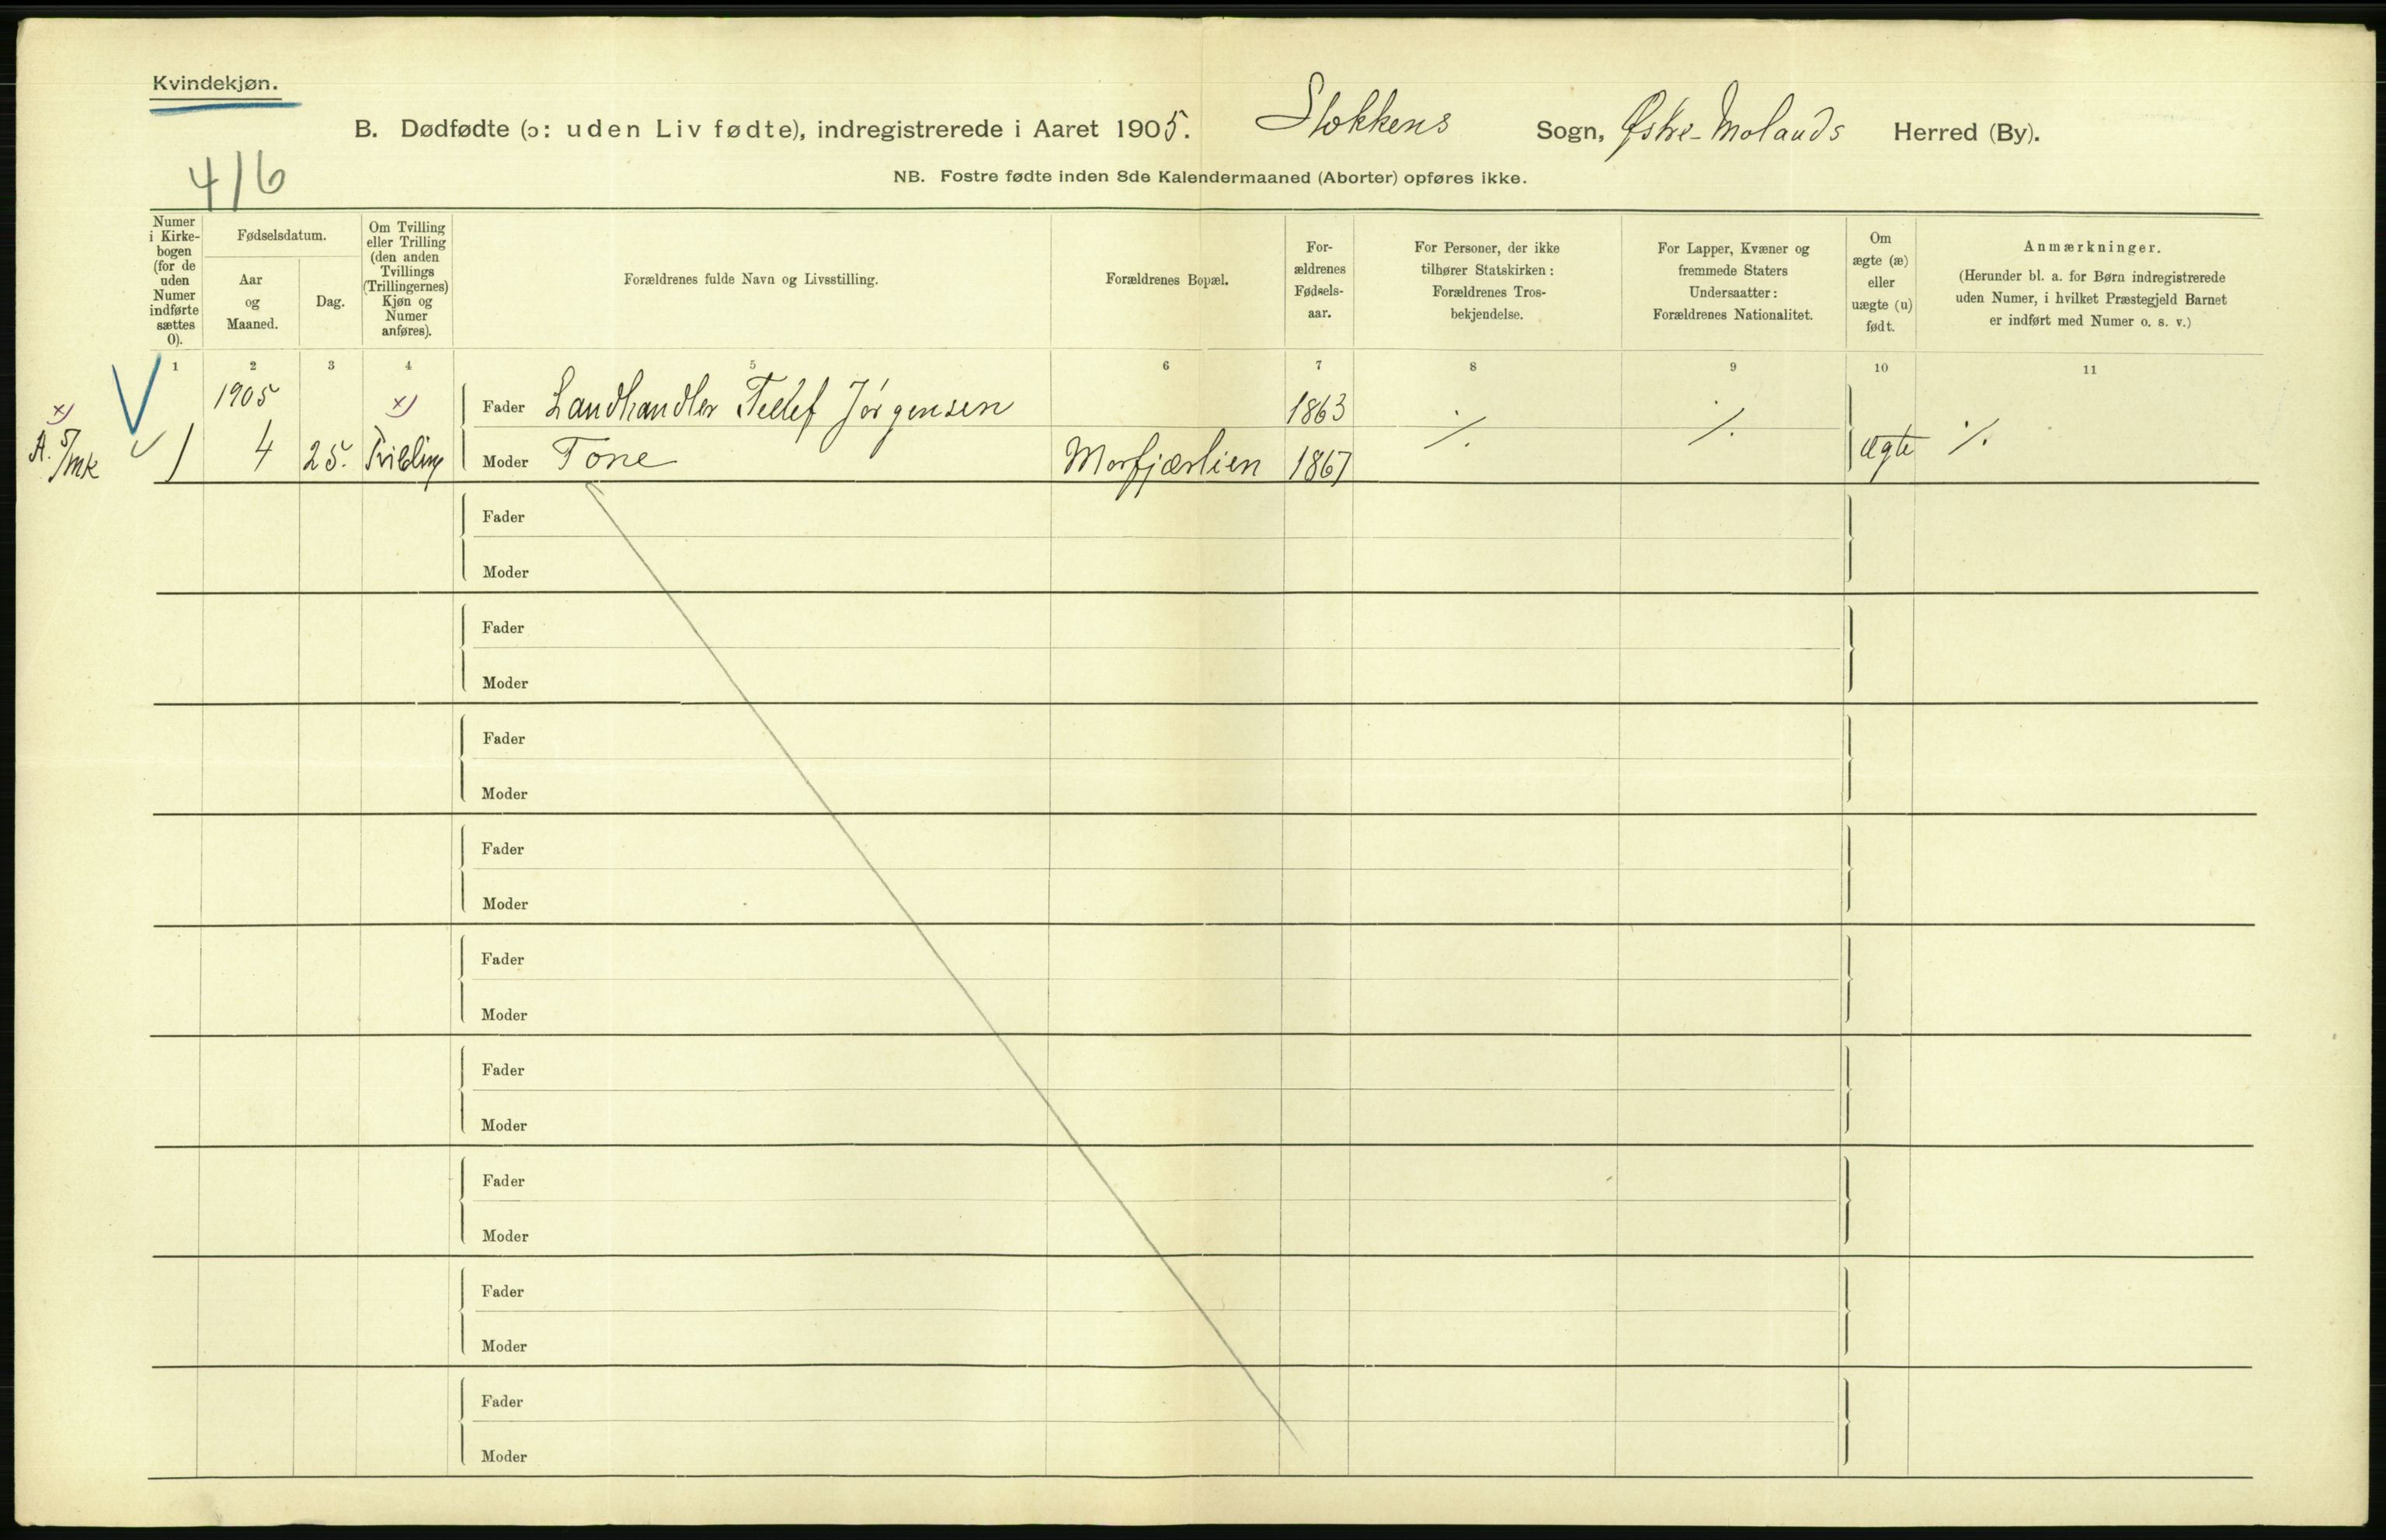 Kvindekjøn.
B. Dødfødte (ɔ: uden Liv fødte), indregistrerede i Aaret 1905. Stokkens Sogn, Østre-Molands Herred (By).
416
NB. Fostre fødte inden 8de Kalendermaaned (Aborter) opføres ikke.
Numer i Kirke-bogen (for de uden Numer indførte sættes 0).
Fødselsdatum.
Aar og Maaned.
Dag.
Om Tvilling eller Trilling (den anden Tvillings (Trillingernes) Kjøn og Numer anføres).
Forældrenes fulde Navn og Livsstilling.
Forældrenes Bopæl.
For-ældrenes Fødsels-aar.
For Personer, der ikke tilhører Statskirken: Forældrenes Tros-bekjendelse.
For Lapper, Kvæner og fremmede Staters Undersaatter: Forældrenes Nationalitet.
Om ægte (æ) eller uægte (u) født.
Anmærkninger.
(Herunder bl. a. for Børn indregistrerede uden Numer, i hvilket Præstegjeld Barnet er indført med Numer o. s. v.)
1 2 3 4 5 6 7 8 9 10 11
1905 x) Fader Landhandler Tellef Jørgensen 1863 ./. ./.
x) A. 5/mk 1 4 25. Tvilling Moder Tone Morfjærlien 1867 Ægte ./.
Fader
Moder
Fader
Moder
Fader
Moder
Fader
Moder
Fader
Moder
Fader
Moder
Fader
Moder
Fader
Moder
Fader
Moder